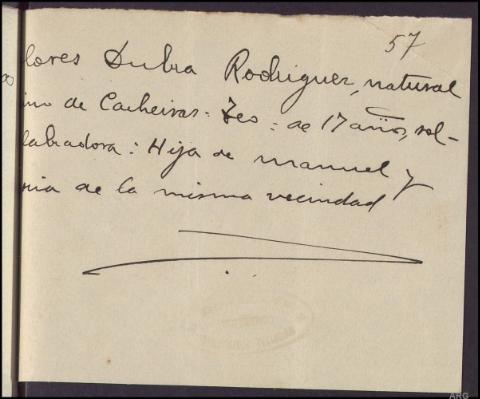 57
lores Dubra Rodriguez, natural
ino de Cacheiras: Teo: de 17 años, sol-
labradora: Hija de Manuel y
nia de la misma vecindad
ARG